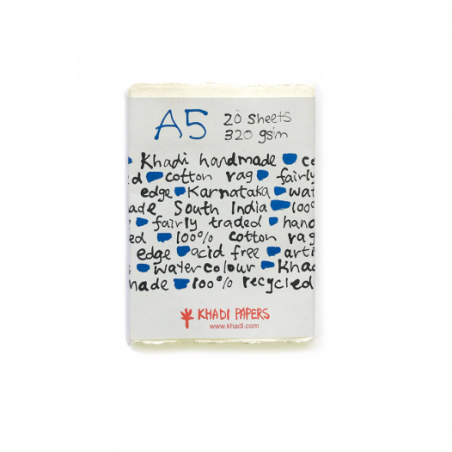 A5 20 sheets
320 gsm
Khadi handmade co
d cotton rag fairly
edge Karnataka wat
ade South India 100
fairly traded hand
ed 100% cotton rag
edge acid free arti
watercolour Khad
made 100% recycled
KHADI PAPERS
www.khadi.com